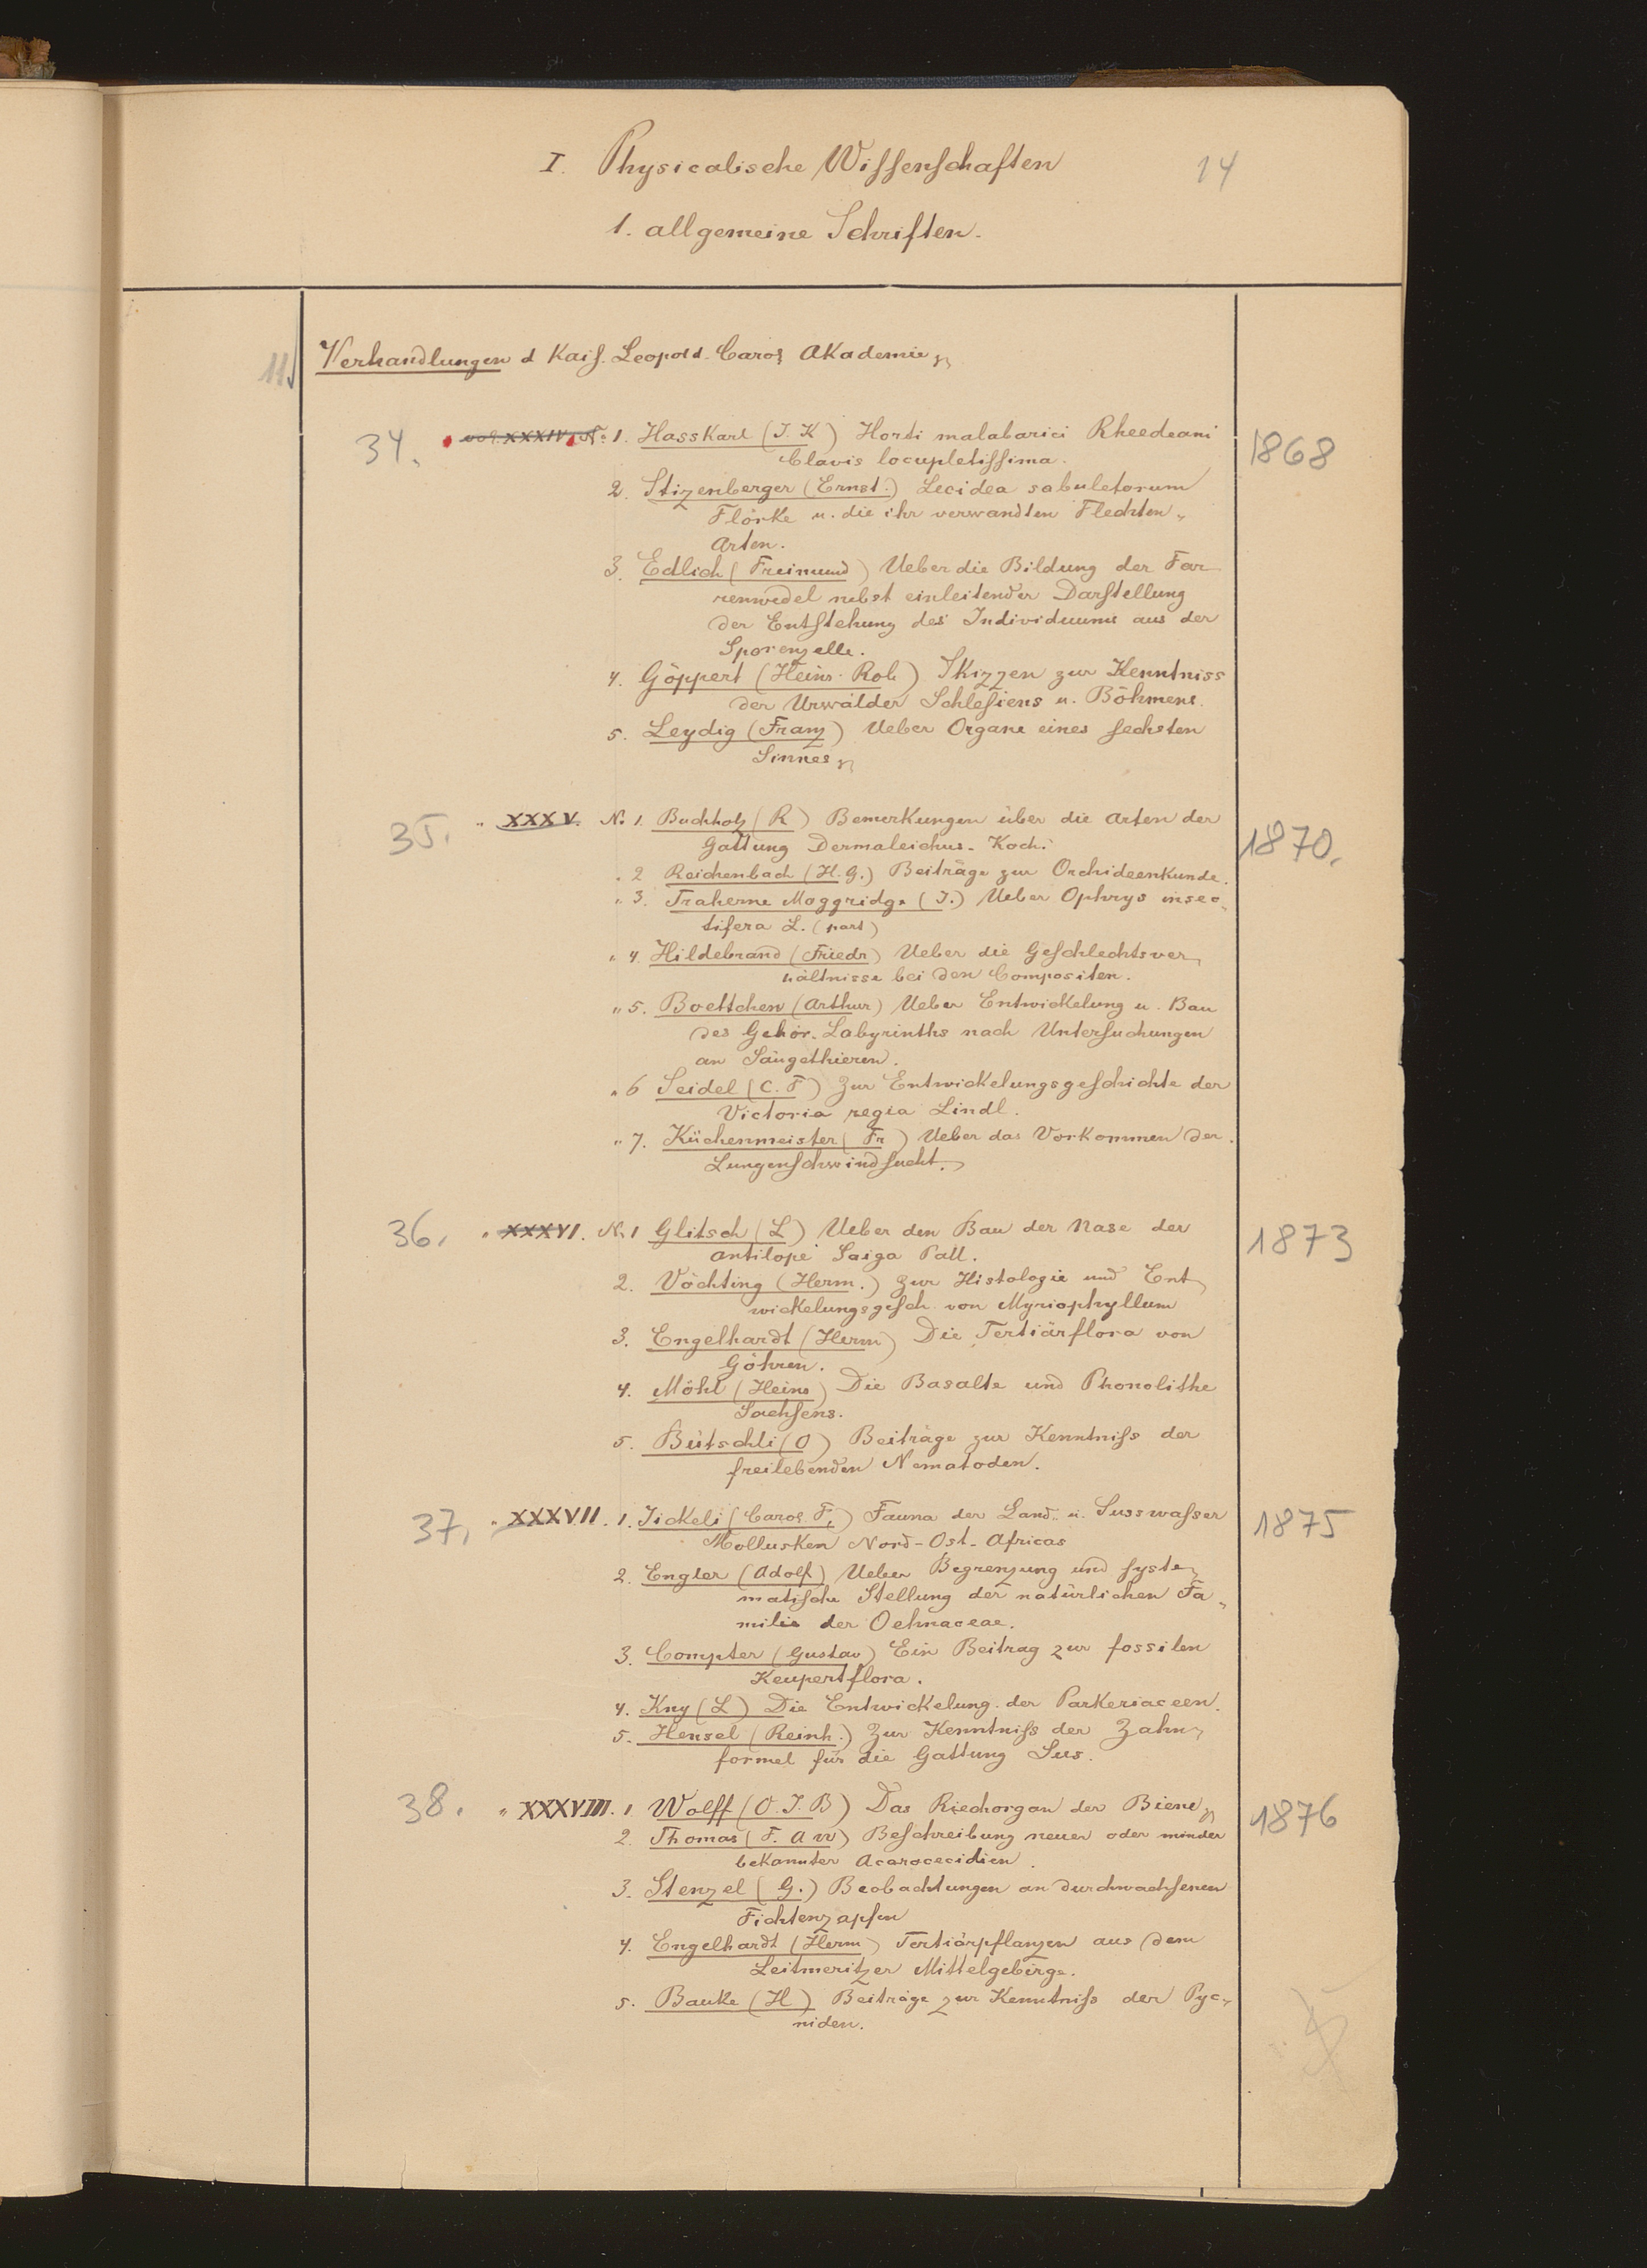 I. Physicalische Wissenschaften
14
1. allgemeine Schriften.
11. Verhandlungen d Kais. Leopold. Carol Akademie
34. vol. XXXIV. N: 1. Hasskarl (J. K) Horti malabarici Rheedeani 1868
Clavis locupletissima.
2. Stizenberger (Ernst.) Lecidea sabuletorum
Flörke u. die ihr verwandten Flechten„
Arten.
3. Edlich (Freimund) Ueber die Bildung der Far
renwedel nebst einleitender Darstellung
der Entstehung des Individuums aus der
Sporenzelle.
4. Göppert (Heinr. Rob) Skizzen zur Kenntniss
der Urwälder Schlesiens u. Böhmens.
5. Leydig (Franz) Ueber Organe eines sechsten
Sinnes
35. „ XXXV. N. 1. Buchholz (R) Bemerkungen über die Arten der 1870.
Gattung Dermaleichus. Koch.
„ 2 Reichenbach (H. G.) Beiträge zur Orchideenkunde.
„ 3. Traherne Moggridge (J.) Ueber Ophrys insec„
tifera L. (part)
„ 4. Hildebrand (Friedr) Ueber die Geschlechtsver„
hältnisse bei den Compositen.
„ 5. Boettcher (Arthur) Ueber Entwickelung u. Bau
des Gehör. Labyrinths nach Untersuchungen
an Säugethieren.
„ 6 Seidel (C. F) Zur Entwickelungsgeschichte der
Victoria regia Lindl.
„ 7. Küchenmeister (Fr) Ueber das Vorkommen der
Lungenschwindsucht.
36. „ XXXVI. N. 1 Glitsch (L) Ueber den Bau der Nase der 1873
antilope Saiga Pall.
2. Vöchting (Herm.) Zur Histologie und Ent„
wickelungsgesch. von Myriophyllum
3. Engelhardt (Herm) Die Tertiärflora von
Göhren.
4. Möhl (Heinr) Die Basalte und Phonolithe
Sachsens.
5. Bütschli (O) Beiträge zur Kenntniss der
freilebenden Nematoden.
37. „ XXXVII. 1. Jickeli (Carol F.) Fauna der Land- u. Susswasser 1875
Mollusken Nord-Ost-Africas
2. Engler (Adolf) Ueber Begrenzung und syste„
matische Stellung der natürlichen Fa„
milie der Ochnaceae.
3. Compter (Gustav) Ein Beitrag zur fossilen
Keupertflora.
4. Kny (L) Die Entwickelung der Parkeriaceen.
5. Hensel (Reinh.) Zur Kenntniss der Zahn„
formel für die Gattung Sus.
38. „ XXXVIII. 1 Wolff (O. J. B) Das Riechorgan der Biene 1876
2. Thomas (F. A W) Beschreibung neuer oder minder
bekannter Acarocecidien.
3. Stenzel (G.) Beobachtungen an durchwachsenen
Fichtenzapfen
4. Engelhardt (Herm) Tertiärpflanzen aus dem
Leitmeritzer Mittelgebirge.
5. Bauke (H) Beiträge zur Kenntniss der Pyc„
niden.